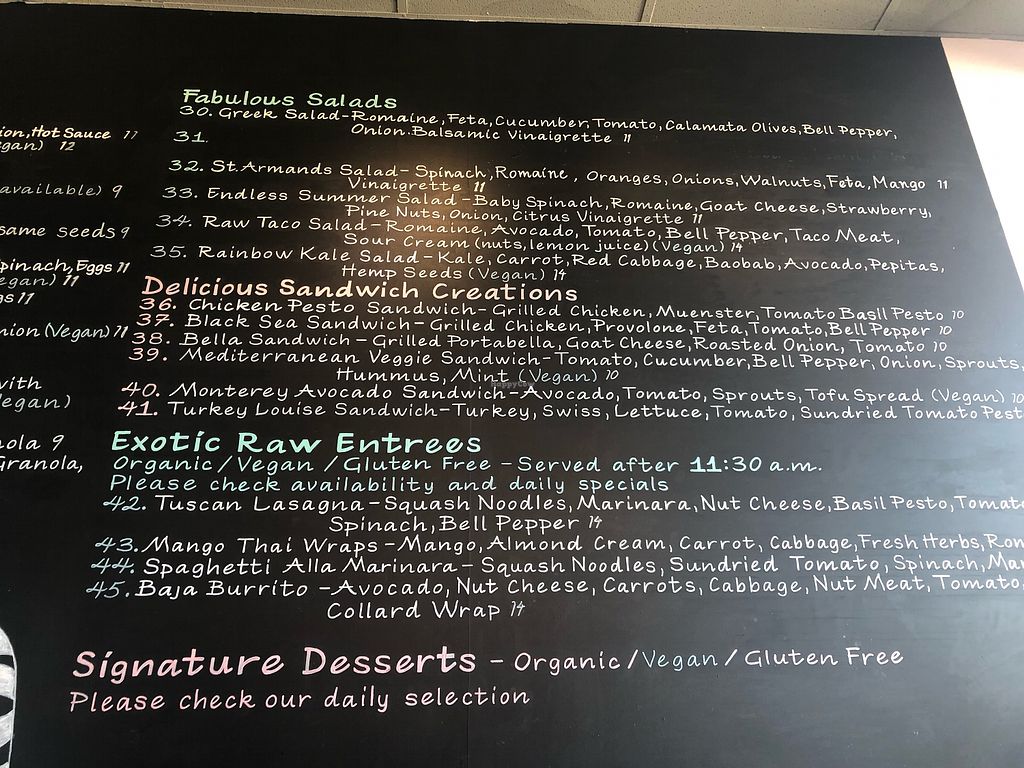 ion, Hot Sauce 11
egan) 12
available) 9
same seeds 9
pinach, Eggs 11
egan) 11
gs 11
nion (Vegan) 11
with
Vegan)
nola 9
Granola,
Fabulous Salads
30. Greek Salad-Romaine, Feta, Cucumber, Tomato, Calamata Olives, Bell Pepper,
Onion. Balsamic Vinaigrette 11
31.
32. St. Armands Salad- Spinach, Romaine, Oranges, Onions, Walnuts, Feta, Mango 11
Vinaigrette 11
33. Endless Summer Salad-Baby Spinach, Romaine, Goat Cheese, Strawberry,
Pine Nuts, Onion, Citrus Vinaigrette 11
34. Raw Taco Salad-Romaine, Avocado, Tomato, Bell Pepper, Taco Meat,
Sour Cream (nuts, lemon juice) (Vegan) 14
35. Rainbow Kale Salad-Kale, Carrot, Red Cabbage, Baobab, Avocado, Pepitas,
Hemp Seeds (Vegan) 14
Delicious Sandwich Creations
36. Chicken Pesto Sandwich-Grilled Chicken, Muenster, Tomato Basil Pesto 10
37. Black Sea Sandwich-Grilled Chicken, Provolone, Feta, Tomato, Bell Pepper 10
38. Bella Sandwich-Grilled Portabella, Goat Cheese, Roasted Onion, Tomato 10
39. Mediterranean Veggie Sandwich-Tomato, Cucumber, Bell Pepper, Onion, Sprouts,
Hummus, Mint (Vegan) 10
40. Monterey Avocado Sandwich-Avocado, Tomato, Sprouts, Tofu Spread (Vegan) 10
41. Turkey Louise Sandwich-Turkey, Swiss, Lettuce, Tomato, Sundried Tomato Pest
Exotic Raw Entrees
Organic/Vegan/Gluten Free - Served after 11:30 a.m.
Please check availability and daily specials
42. Tuscan Lasagna-Squash Noodles, Marinara, Nut Cheese, Basil Pesto, Tomato
Spinach, Bell Pepper 14
43. Mango Thai Wraps-Mango, Almond Cream, Carrot, Cabbage, Fresh Herbs, Rom
44. Spaghetti Alla Marinara- Squash Noodles, Sundried Tomato, Spinach, Mar
45. Baja Burrito -Avocado, Nut Cheese, Carrots, Cabbage, Nut Meat, Tomato,
Collard Wrap 14
Signature Desserts - Organic/Vegan/Gluten Free
Please check our daily selection